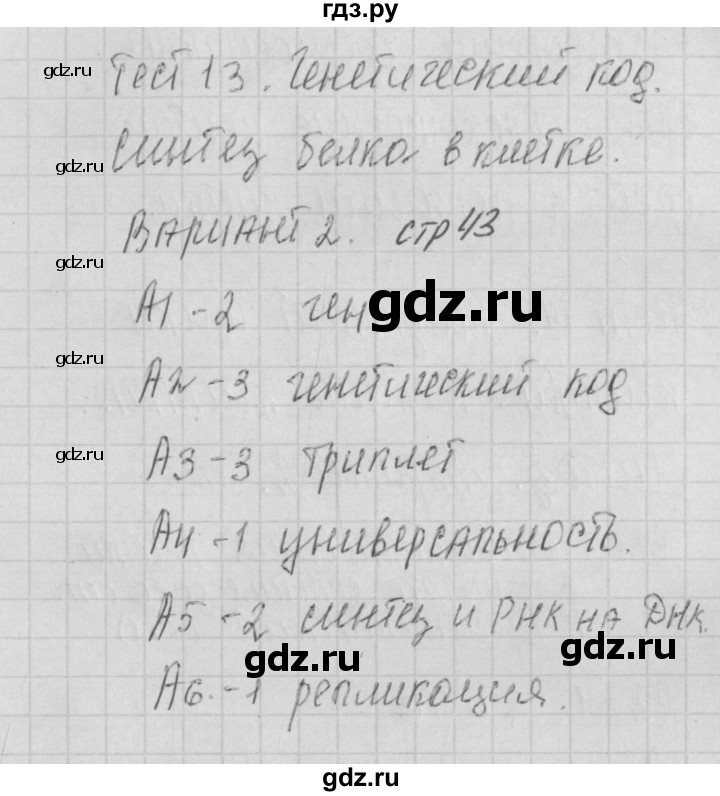 гдз.ру
gdz.ru
Тест 13. Генетический код.
gdz.ru
Синтез белка в клетке.
Вариант 2. стр 43
gdz.ru
А1 - 2 ген
gdz.ru
gdz.ru
А2 - 3 генетический код
gdz.ru
А3 - 3 триплет
А4 - 1 универсальность.
А5 - 2 синтез и РНК на ДНК.
gdz.ru
gdz.ru
А6. - 1 репликация.
gdz.ru